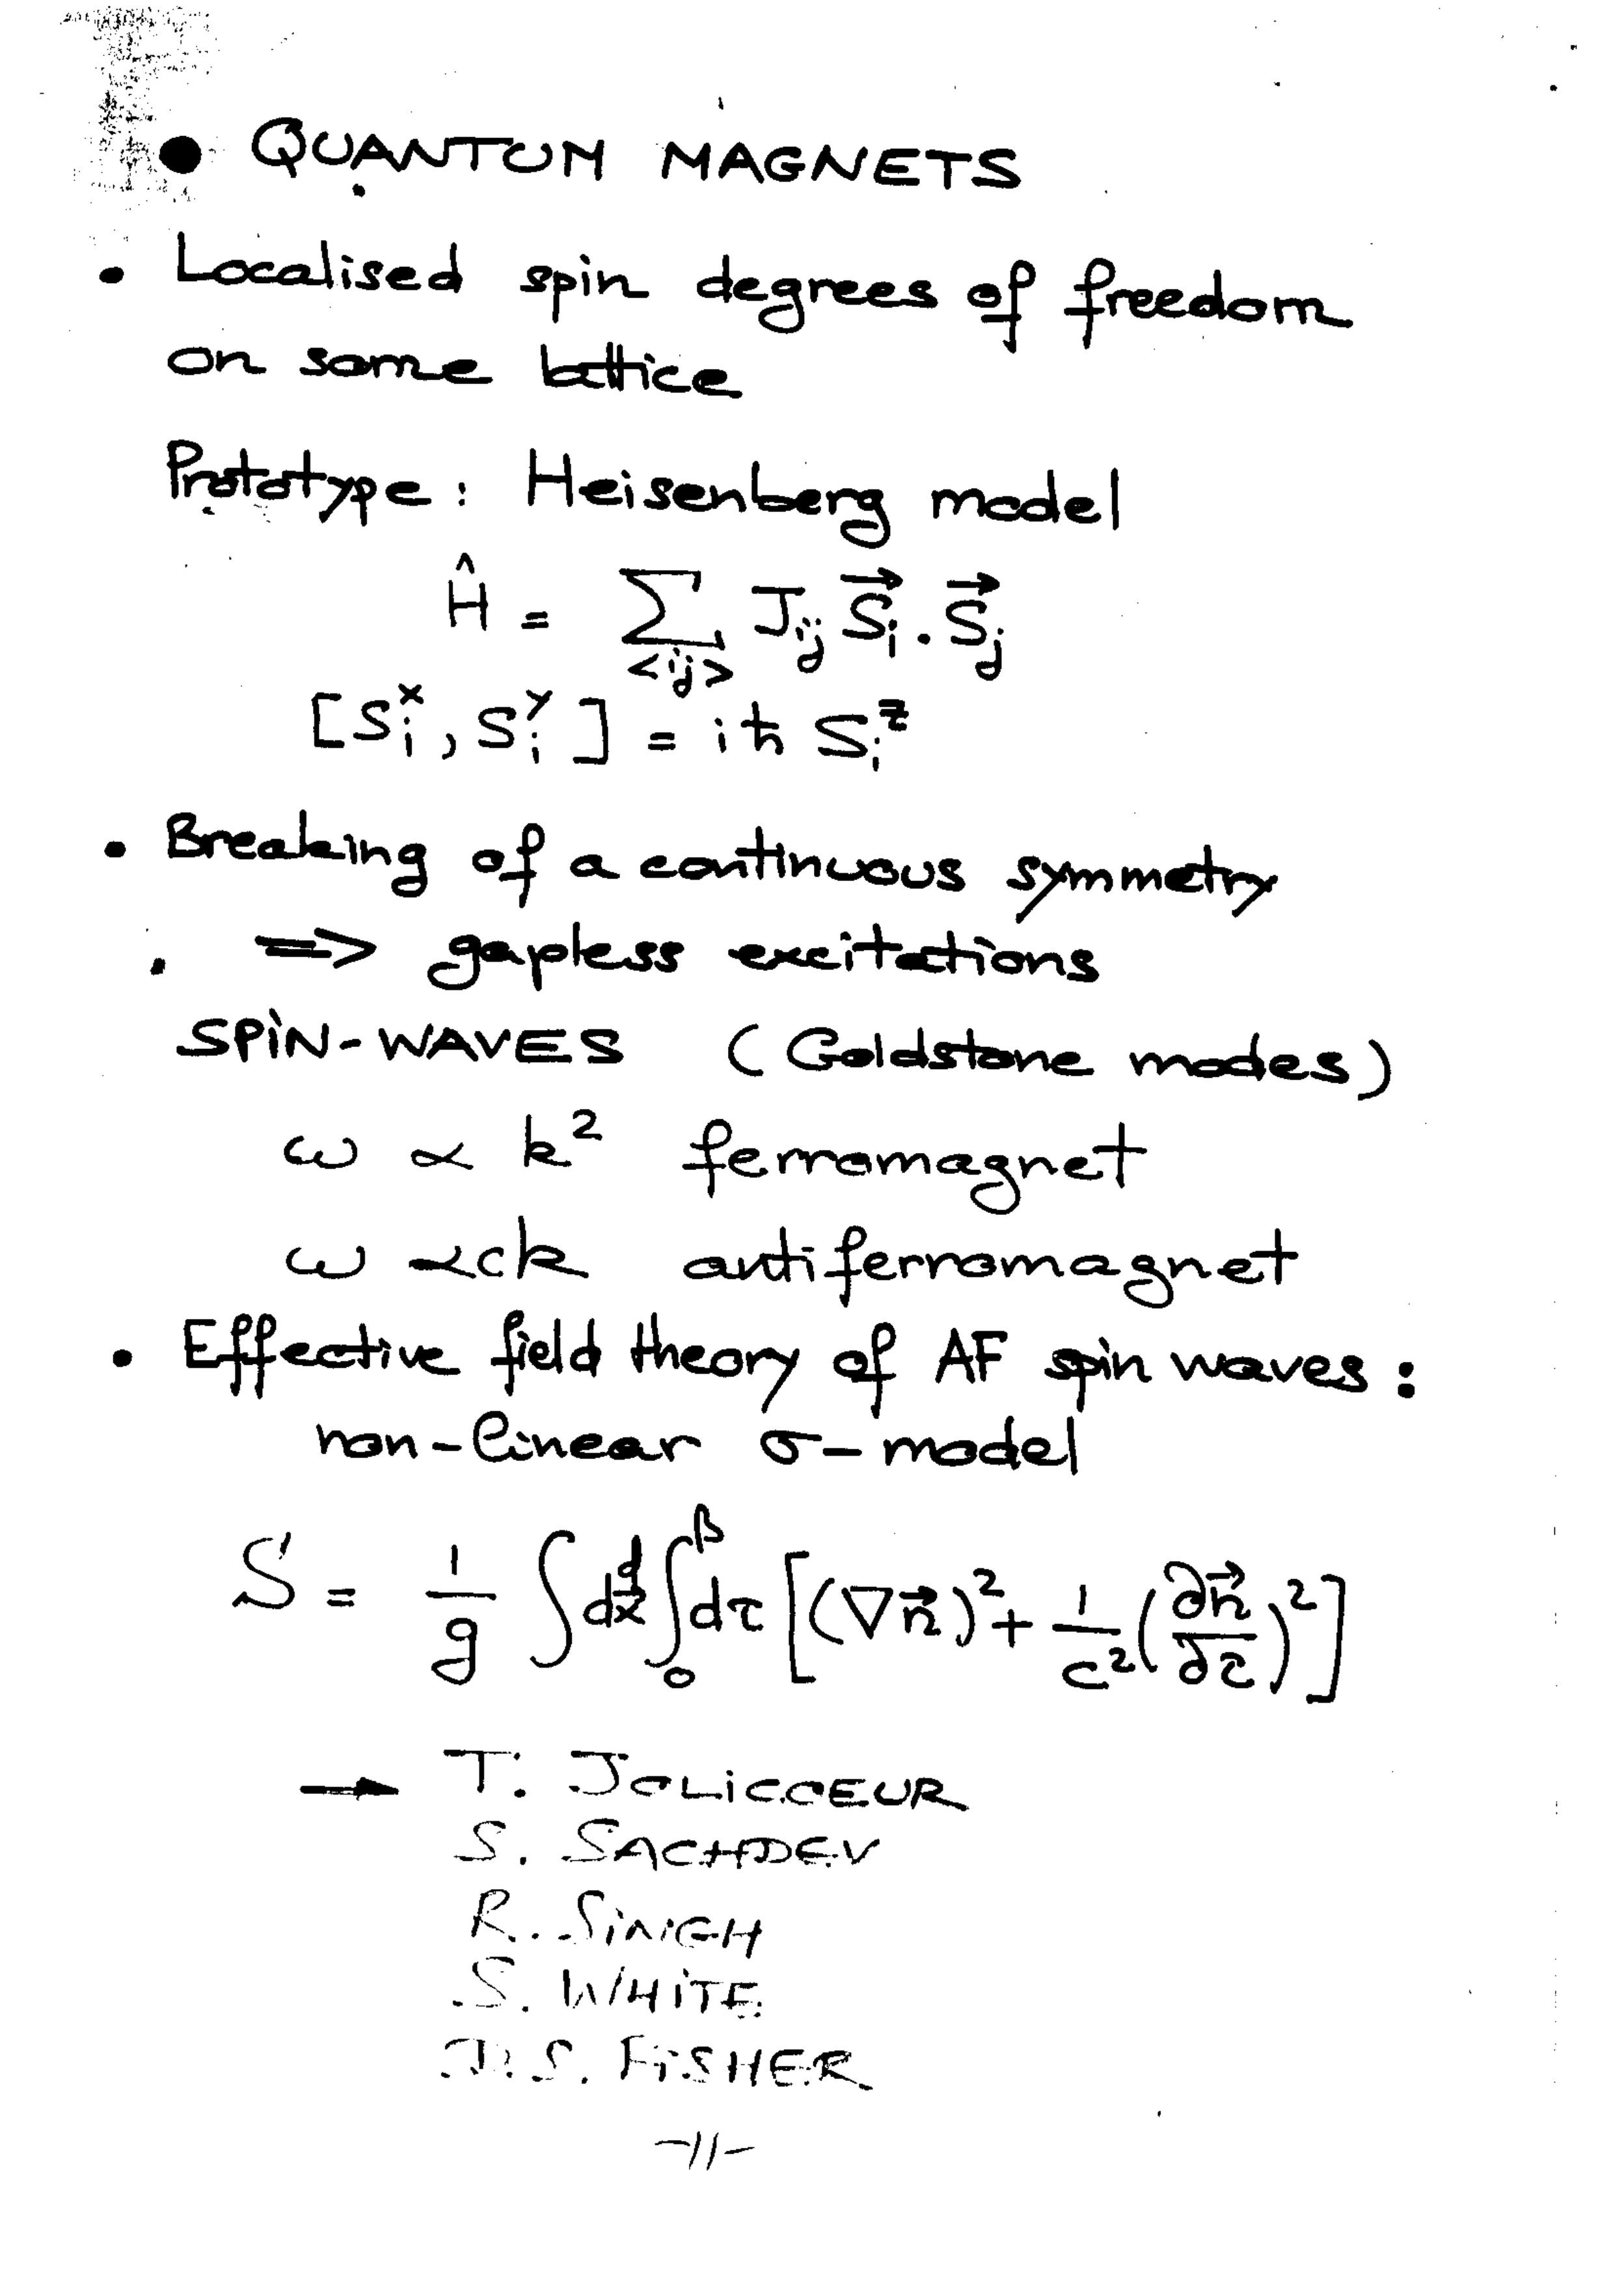 ● QUANTUM MAGNETS
• Localised spin degrees of freedom
on some lattice
Prototype: Heisenberg model
Ĥ = ∑_{<ij>} J_{ij} \vec{S}_i . \vec{S}_j
[S_i^x, S_i^y] = iℏ S_i^z
• Breaking of a continuous symmetry
=> gapless excitations
SPIN-WAVES (Goldstone modes)
ω ∝ k² ferromagnet
ω ∝ ck antiferromagnet
• Effective field theory of AF spin waves:
non-linear σ-model
S = \frac{1}{g} ∫ d^d\vec{x} ∫_0^β dτ [(∇\vec{n})² + \frac{1}{c²}(\frac{∂\vec{n}}{∂τ})²]
→ T. JOLICOEUR
S. SACHDEV
R. SINGH
S. WHITE
D.S. FISHER
-11-